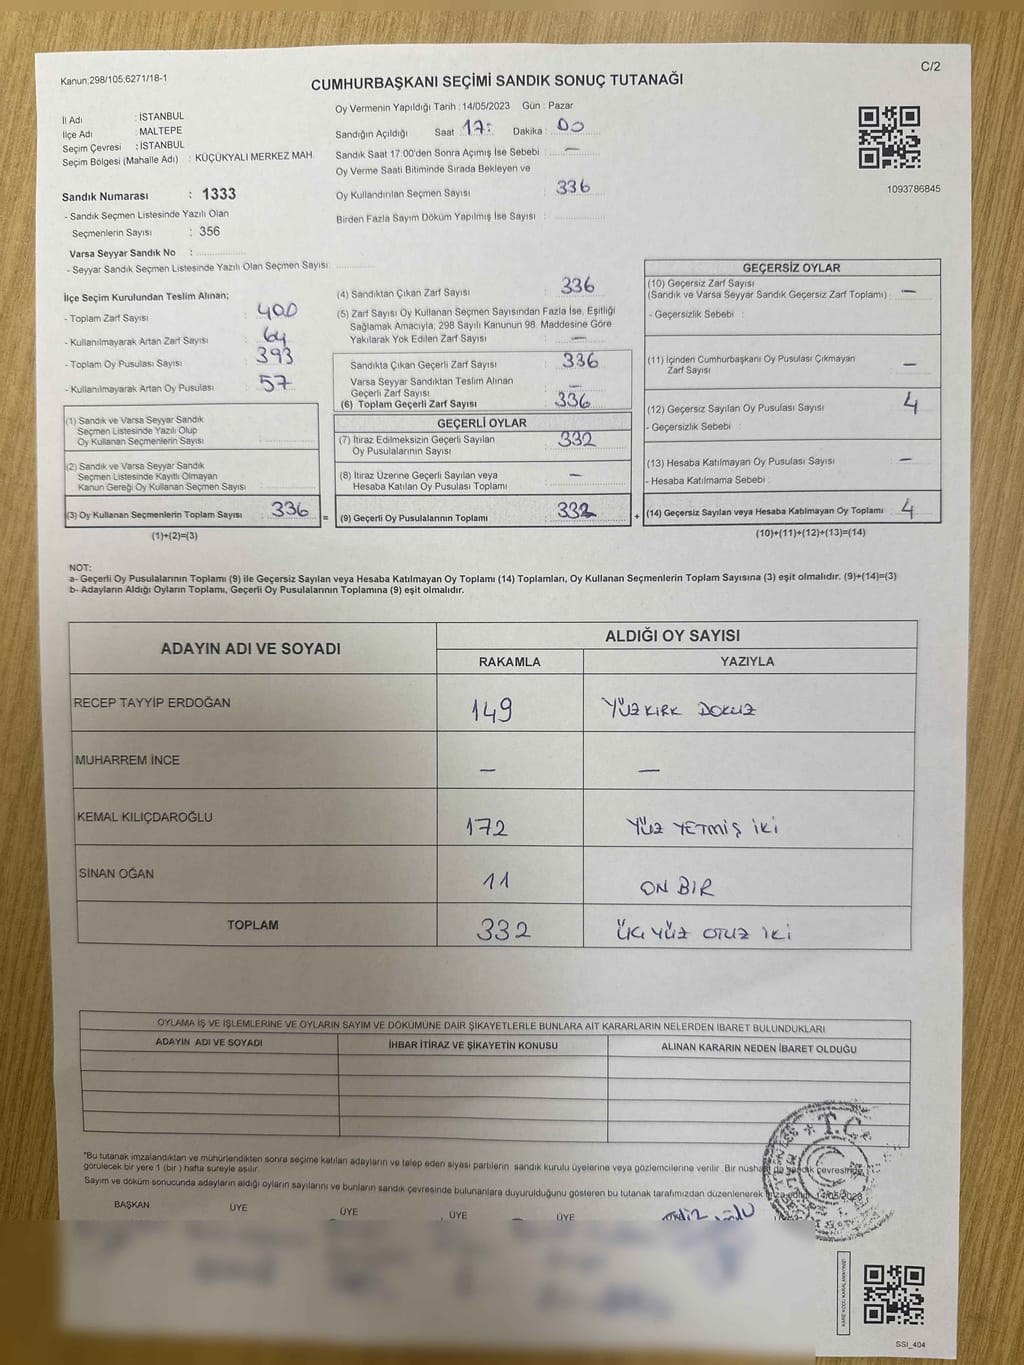 Kanun;298/105;6271/18-1
C/2
CUMHURBAŞKANI SEÇİMİ SANDIK SONUÇ TUTANAĞI
İl Adı : İSTANBUL
İlçe Adı : MALTEPE
Seçim Çevresi : İSTANBUL
Seçim Bölgesi (Mahalle Adı) : KÜÇÜKYALI MERKEZ MAH.
Oy Vermenin Yapıldığı Tarih : 14/05/2023 Gün : Pazar
Sandığın Açıldığı Saat : 17: Dakika : 00
Sandık Saat 17:00'den Sonra Açımış İse Sebebi : —
Oy Verme Saati Bitiminde Sırada Bekleyen ve
Oy Kullandırılan Seçmen Sayısı : 336
Birden Fazla Sayım Döküm Yapılmış İse Sayısı :
1093786845
Sandık Numarası : 1333
- Sandık Seçmen Listesinde Yazılı Olan
Seçmenlerin Sayısı : 356
Varsa Seyyar Sandık No :
- Seyyar Sandık Seçmen Listesinde Yazılı Olan Seçmen Sayısı :
İlçe Seçim Kurulundan Teslim Alınan;
- Toplam Zarf Sayısı : 400
- Kullanılmayarak Artan Zarf Sayısı : 64
- Toplam Oy Pusulası Sayısı : 393
- Kullanılmayarak Artan Oy Pusulası : 57
(1) Sandık ve Varsa Seyyar Sandık
Seçmen Listesinde Yazılı Olup
Oy Kullanan Seçmenlerin Sayısı :
(2) Sandık ve Varsa Seyyar Sandık
Seçmen Listesinde Kayıtlı Olmayan
Kanun Gereği Oy Kullanan Seçmen Sayısı :
(3) Oy Kullanan Seçmenlerin Toplam Sayısı : 336
(1)+(2)=(3)
(4) Sandıktan Çıkan Zarf Sayısı : 336
(5) Zarf Sayısı Oy Kullanan Seçmen Sayısından Fazla İse, Eşitliği
Sağlamak Amacıyla, 298 Sayılı Kanunun 98. Maddesine Göre
Yakılarak Yok Edilen Zarf Sayısı : —
Sandıkta Çıkan Geçerli Zarf Sayısı : 336
Varsa Seyyar Sandıktan Teslim Alınan
Geçerli Zarf Sayısı : —
(6) Toplam Geçerli Zarf Sayısı : 336
GEÇERLİ OYLAR
(7) İtiraz Edilmeksizin Geçerli Sayılan
Oy Pusulalarının Sayısı : 332
(8) İtiraz Üzerine Geçerli Sayılan veya
Hesaba Katılan Oy Pusulası Toplamı : —
= (9) Geçerli Oy Pusulalarının Toplamı : 332
GEÇERSİZ OYLAR
(10) Geçersiz Zarf Sayısı
(Sandık ve Varsa Seyyar Sandık Geçersiz Zarf Toplamı) : —
- Geçersizlik Sebebi :
(11) İçinden Cumhurbaşkanı Oy Pusulası Çıkmayan
Zarf Sayısı : —
(12) Geçersiz Sayılan Oy Pusulası Sayısı : 4
- Geçersizlik Sebebi :
(13) Hesaba Katılmayan Oy Pusulası Sayısı : —
- Hesaba Katılmama Sebebi :
+ (14) Geçersiz Sayılan veya Hesaba Katılmayan Oy Toplamı : 4
(10)+(11)+(12)+(13)=(14)
NOT:
a- Geçerli Oy Pusulalarının Toplamı (9) ile Geçersiz Sayılan veya Hesaba Katılmayan Oy Toplamı (14) Toplamları, Oy Kullanan Seçmenlerin Toplam Sayısına (3) eşit olmalıdır. (9)+(14)=(3)
b- Adayların Aldığı Oyların Toplamı, Geçerli Oy Pusulalarının Toplamına (9) eşit olmalıdır.
ADAYIN ADI VE SOYADI
ALDIĞI OY SAYISI
RAKAMLA YAZIYLA
RECEP TAYYİP ERDOĞAN 149 YÜZ KIRK DOKUZ
MUHARREM İNCE — —
KEMAL KILIÇDAROĞLU 172 YÜZ YETMİŞ İKİ
SİNAN OĞAN 11 ON BİR
TOPLAM 332 ÜÇ YÜZ OTUZ İKİ
OYLAMA İŞ VE İŞLEMLERİNE VE OYLARIN SAYIM VE DÖKÜMÜNE DAİR ŞİKAYETLERLE BUNLARA AİT KARARLARIN NELERDEN İBARET BULUNDUKLARI
ADAYIN ADI VE SOYADI İHBAR İTİRAZ VE ŞİKAYETİN KONUSU ALINAN KARARIN NEDEN İBARET OLDUĞU
*Bu tutanak imzalandıktan ve mühürlendikten sonra seçime katılan adayların ve talep eden siyasi partilerin sandık kurulu üyelerine veya gözlemcilerine verilir. Bir nüshası da sandık çevresinde
görülecek bir yere 1 (bir ) hafta süreyle asılır.
Sayım ve döküm sonucunda adayların aldığı oyların sayılarını ve bunların sandık çevresinde bulunanlara duyurulduğunu gösteren bu tutanak tarafımızdan düzenlenerek imza edildi. 14/05/2023
BAŞKAN ÜYE ÜYE ÜYE ÜYE
T.C.
KARE KODU KARALAMAYINIZ!
SSI_404